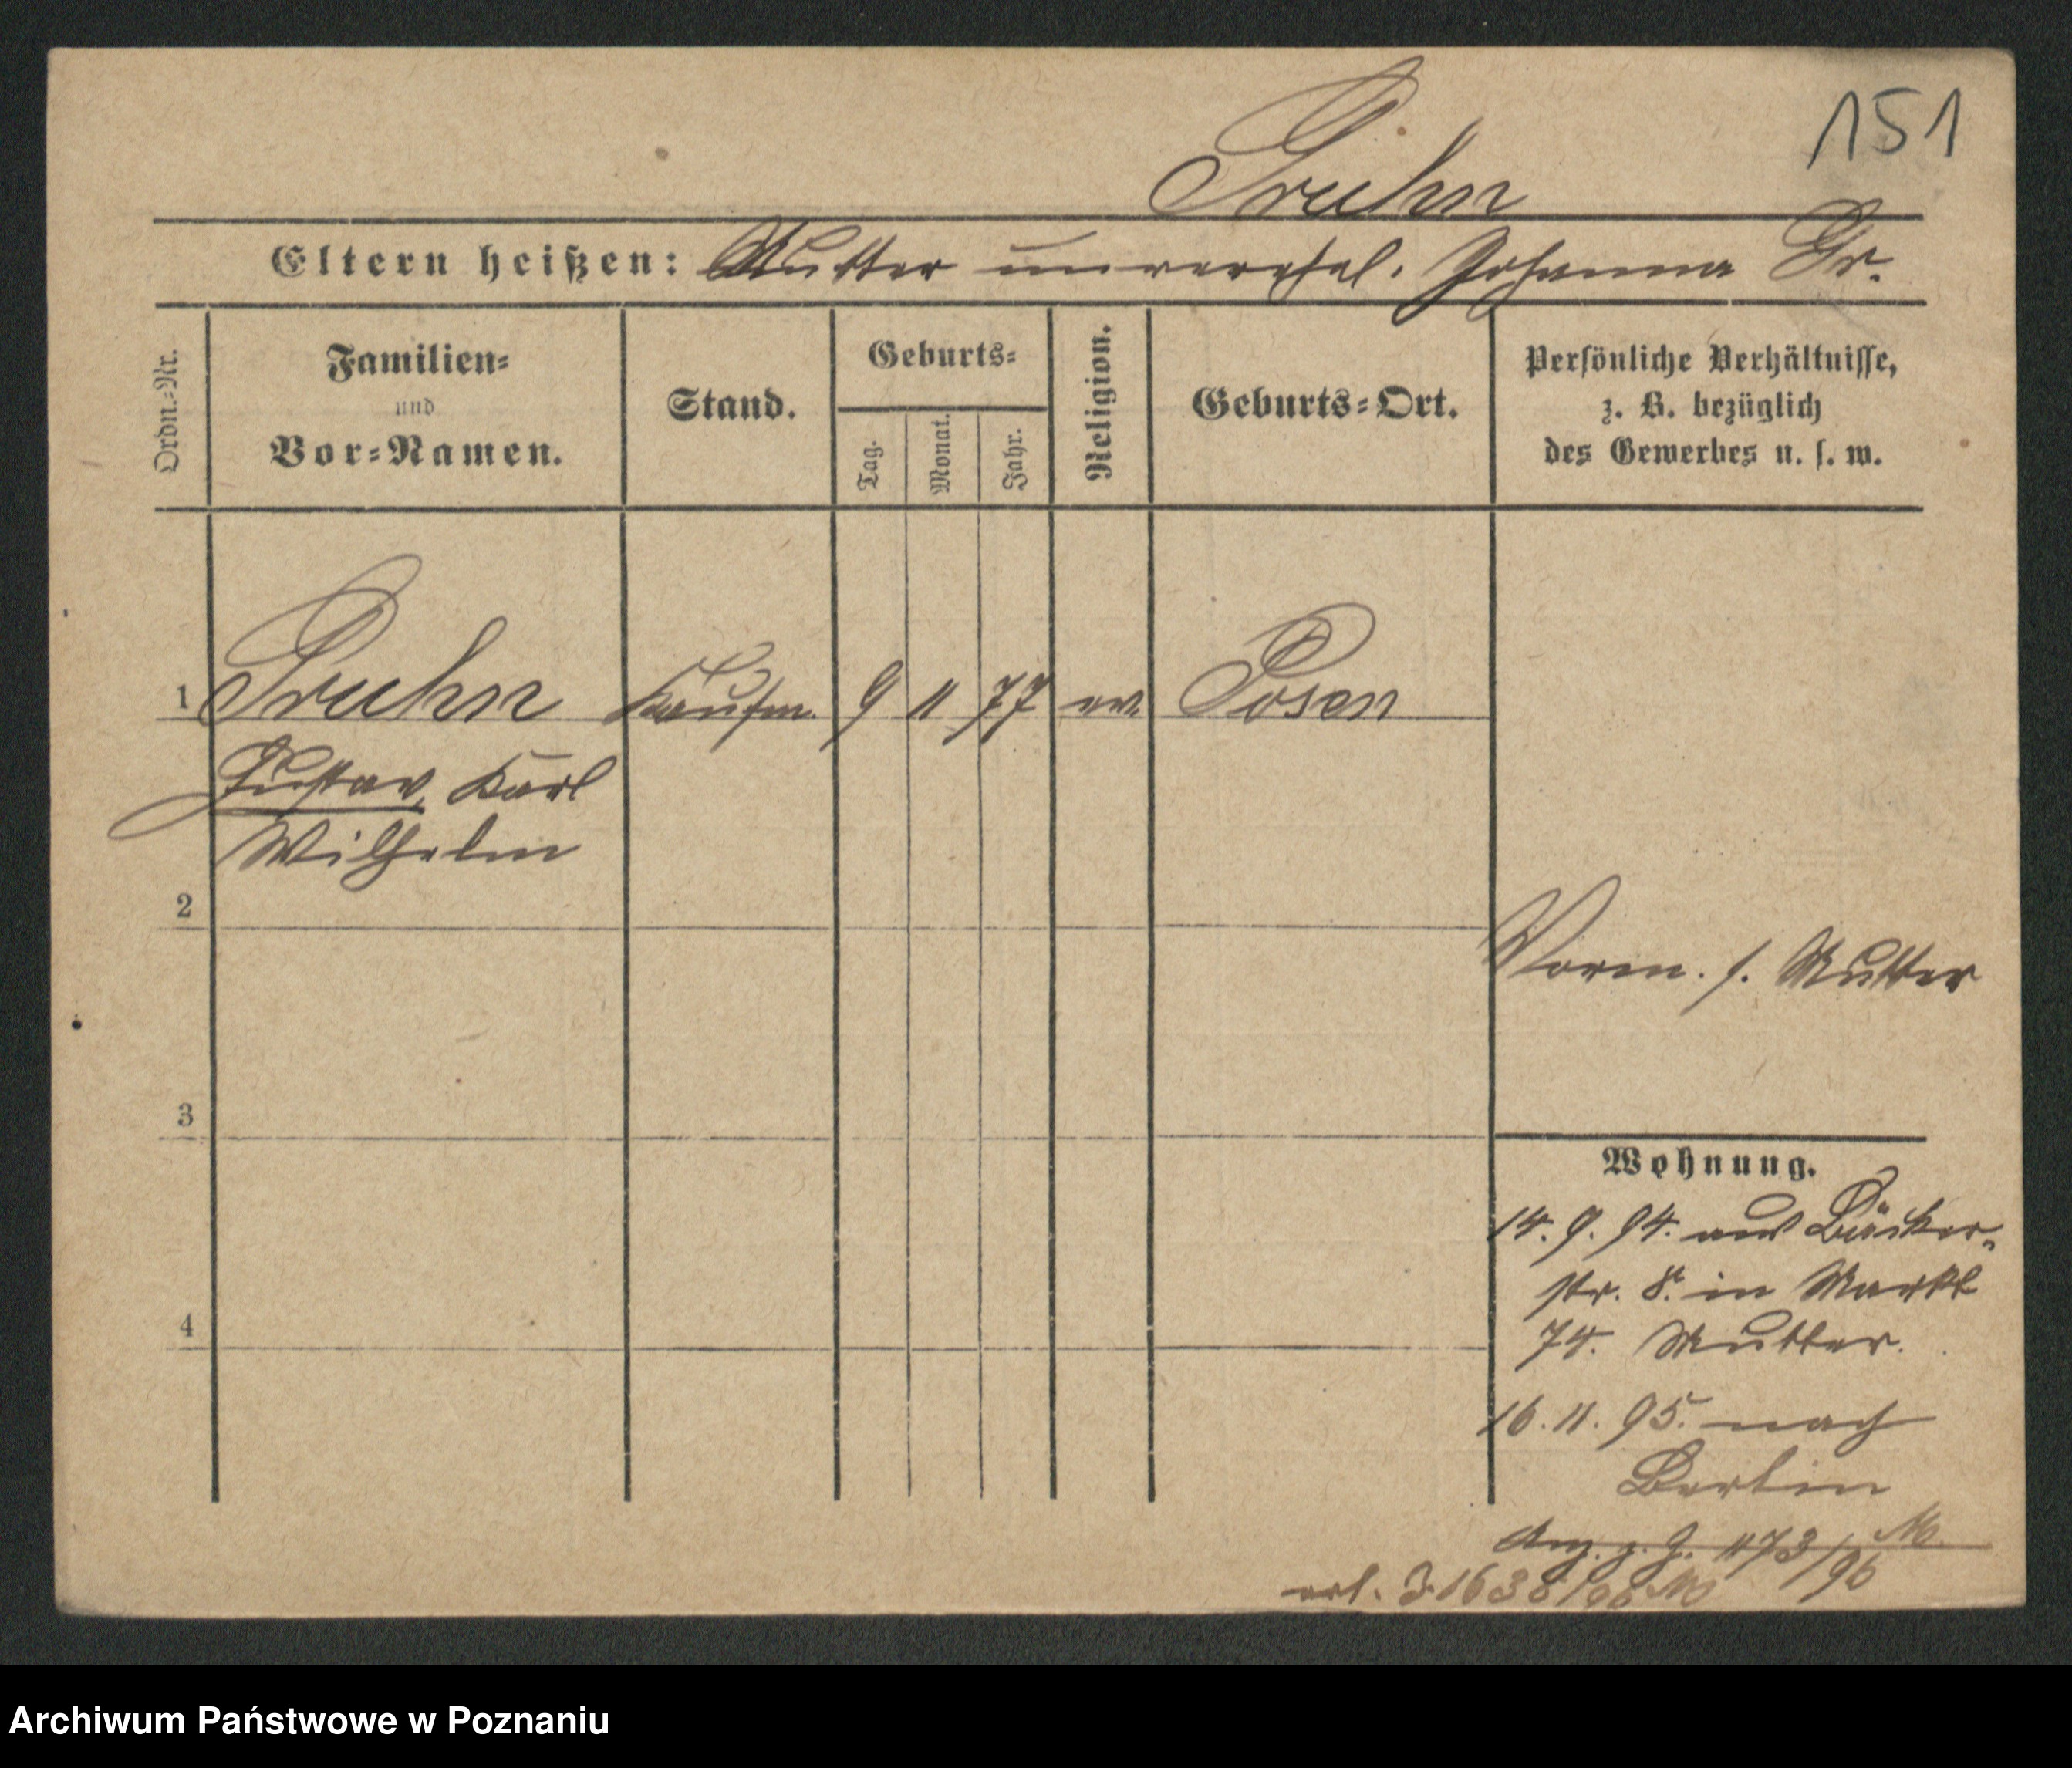 151
Pruhn
Eltern heißen: Mutter unverehel. Johanna Pr.
Ordn.-Nr.
Familien-
und
Vor-Namen.
Stand.
Geburts-
Tag.
Monat.
Jahr.
Religion.
Geburts-Ort.
Persönliche Verhältnisse,
z. B. bezüglich
des Gewerbes u. s. w.
1 Pruhn Kaufm. 9 11 77 ev. Posen
Gustav, Karl
Wilhelm
2
Vorm. s. Mutter
3
Wohnung.
14. 9. 94. aus Bäcker-
str. 8. in Markt
74. Mutter.
4
16. 11. 95. nach
Berlin
1173/96
erl. J 1638/96
Archiwum Państwowe w Poznaniu